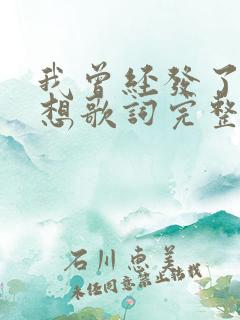 我曾經發了
想歌詞完整
石川恵美
未经同意禁止转载